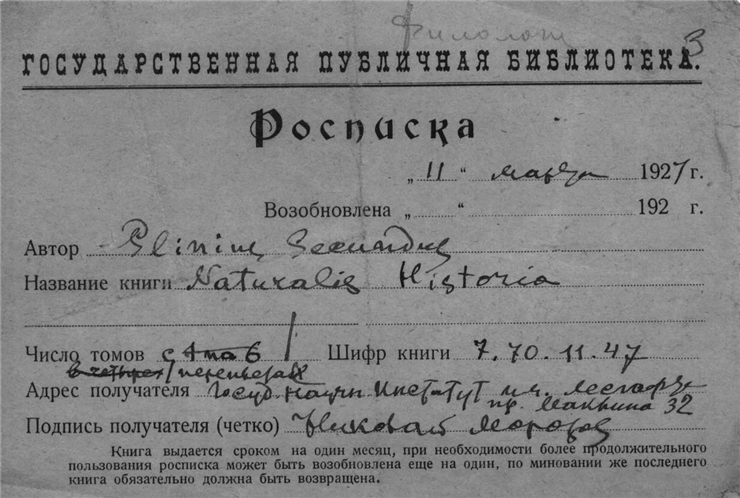 Филолог 3
ГОСУДАРСТВЕННАЯ ПУБЛИЧНАЯ БИБЛИОТЕКА.
Росписка
„ 11 “ марта 1927 г.
Возобновлена „ “ 192 г.
Автор Plinius Secundus
Название книги Naturalis Historia
Число томов с 4 по 6 1 Шифр книги 7.70.11.47
в четырех / переплетах
Адрес получателя Госуд. Научн. Институт им. Лесгафта
пр. Маклина 32
Подпись получателя (четко) Николай Морозов
Книга выдается сроком на один месяц, при необходимости более продолжительного
пользования росписка может быть возобновлена еще на один, по миновании же последнего
книга обязательно должна быть возвращена.